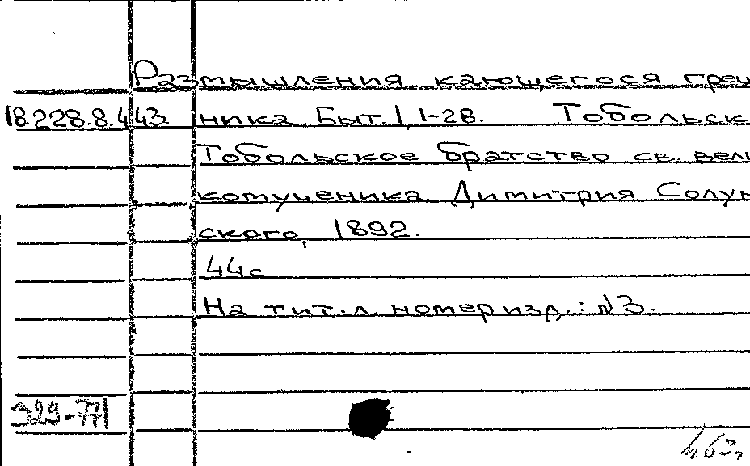 Размышления кающегося греш
18.228.8.443. ника Быт. 1, 1-28. Тобольск
Тобольское братство св. вели
комученика Димитрия Солун
ского, 1892.
44с
На тит. л номер изд.: №3.
329-77